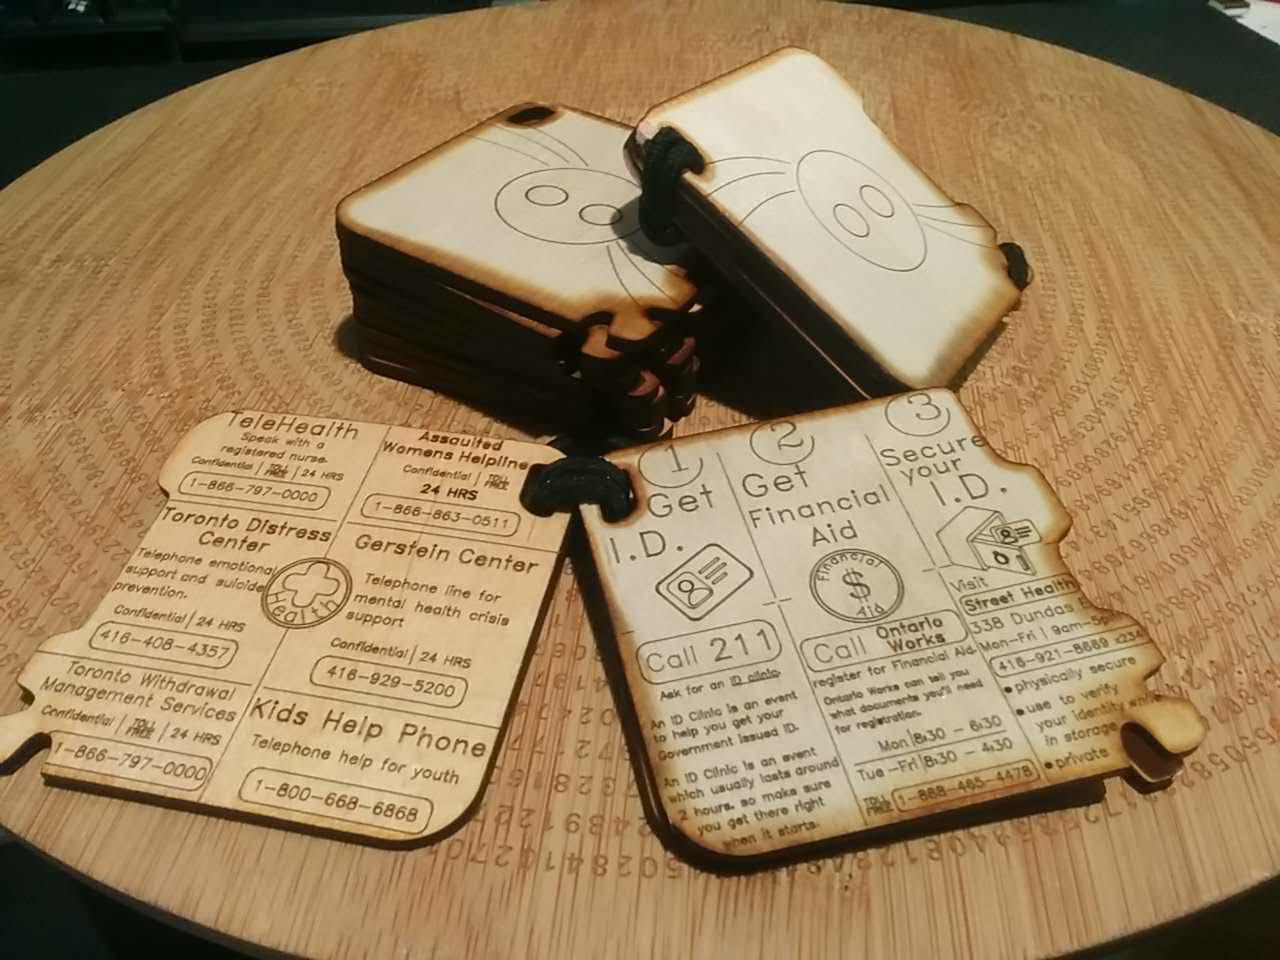 TeleHealth
Speak with a
registered nurse.
Confidential | TOLL FREE | 24 HRS
1-866-797-0000
Assaulted
Womens Helpline
Confidential | TOLL FREE
24 HRS
1-866-863-0511
Toronto Distress
Center
Telephone emotional
support and suicide
prevention.
Confidential | 24 HRS
416-408-4357
Health
Gerstein Center
Telephone line for
mental health crisis
support
Confidential | 24 HRS
416-929-5200
Toronto Withdrawal
Management Services
Confidential | TOLL FREE | 24 HRS
1-866-797-0000
Kids Help Phone
Telephone help for youth
1-800-668-6868
1
Get
I.D.
Call 211
Ask for an ID clinic.
An ID Clinic is an event
to help you get your
Government issued ID.
An ID Clinic is an event
which usually lasts around
2 hours, so make sure
you get there right
when it starts.
2
Get
Financial
Aid
Financial
$
Aid
Call Ontario Works
register for Financial Aid.
Ontario Works can tell you
what documents you'll need
for registration.
Mon|8:30 - 6:30
Tue-Fri|8:30 - 4:30
TOLL FREE 1-888-465-4478
3
Secure
your
I.D.
Visit
Street Health
338 Dundas E
Mon-Fri | 9am-5p
416-921-8669 x234
• physically secure
• use to verify
your identity while
in storage
• private